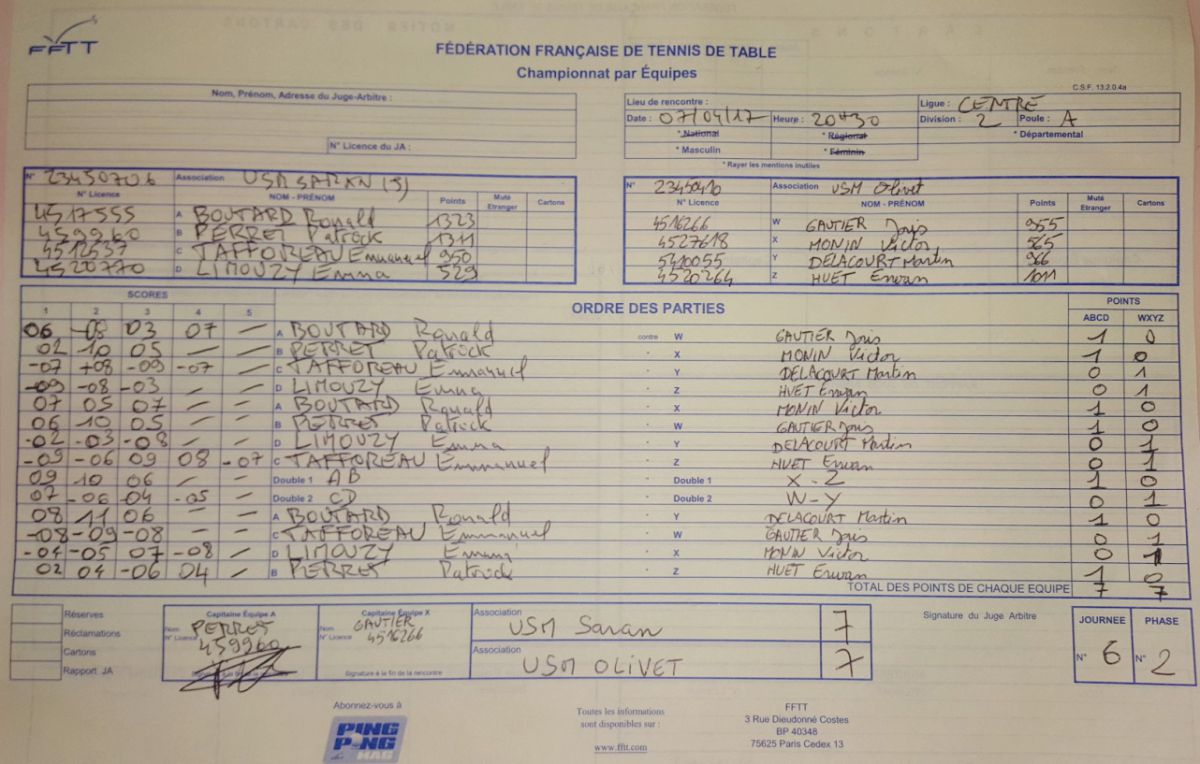 FFTT
FÉDÉRATION FRANÇAISE DE TENNIS DE TABLE
Championnat par Équipes
C.S.F. 13.2.0.4a
Nom, Prénom, Adresse du Juge-Arbitre :
N° Licence du JA :
Lieu de rencontre : Ligue : CENTRE
Date : 07/04/17 Heure : 20H30 Division : 2 Poule : A
* National * Régional * Départemental
* Masculin * Féminin
* Rayer les mentions inutiles
N° Association USM SARAN (3)
N° Licence NOM - PRÉNOM Points Muté Etranger Cartons
4517555 A BOUTARD Ronald 1323
459960 B PERRET Patrick 1311
4512537 C TAFFOREAU Emmanuel 950
4520770 D LIMOUZY Emma 529
N° 23450410 Association USM Olivet
N° Licence NOM - PRÉNOM Points Muté Etranger Cartons
4516266 W GAUTIER Joris 955
4527618 X MONIN Victor 565
5410055 Y DELACOURT Martin 966
4520264 Z HUET Erwan 1011
SCORES ORDRE DES PARTIES POINTS
1 2 3 4 5 ABCD WXYZ
06 -08 03 07 — A BOUTARD Ronald contre W GAUTIER Joris 1 0
02 10 05 — — B PERRET Patrick " X MONIN Victor 1 0
-07 +08 -09 -07 — C TAFFOREAU Emmanuel " Y DELACOURT Martin 0 1
-09 -08 -03 — — D LIMOUZY Emma " Z HUET Erwan 0 1
07 05 07 — — A BOUTARD Ronald " X MONIN Victor 1 0
06 10 05 — — B PERRET Patrick " W GAUTIER Joris 1 0
-02 -03 -08 — — D LIMOUZY Emma " Y DELACOURT Martin 0 1
-09 -06 09 08 -07 C TAFFOREAU Emmanuel " Z HUET Erwan 0 1
09 10 06 — — Double 1 AB " Double 1 X-Z 1 0
07 -06 -04 -05 — Double 2 CD " Double 2 W-Y 0 1
08 11 06 — — A BOUTARD Ronald " Y DELACOURT Martin 1 0
-08 -09 -08 — — C TAFFOREAU Emmanuel " W GAUTIER Joris 0 1
-04 -05 07 -08 — D LIMOUZY Emma " X MONIN Victor 0 1
02 04 -06 04 — B PERRET Patrick " Z HUET Erwan 1 0
TOTAL DES POINTS DE CHAQUE EQUIPE 7 7
Réserves
Réclamations
Cartons
Rapport JA
Capitaine Équipe A
Nom PERRET
N° Licence 459960
Signature à la fin de la rencontre
Capitaine Équipe X
Nom GAUTIER
N° Licence 4516266
Signature à la fin de la rencontre
Association
USM Saran 7
Association
USM OLIVET 7
Signature du Juge Arbitre
JOURNEE PHASE
N° 6 N° 2
Abonnez-vous à
PING PONG MAG
Toutes les informations
sont disponibles sur :
www.fftt.com
FFTT
3 Rue Dieudonné Costes
BP 40348
75625 Paris Cedex 13